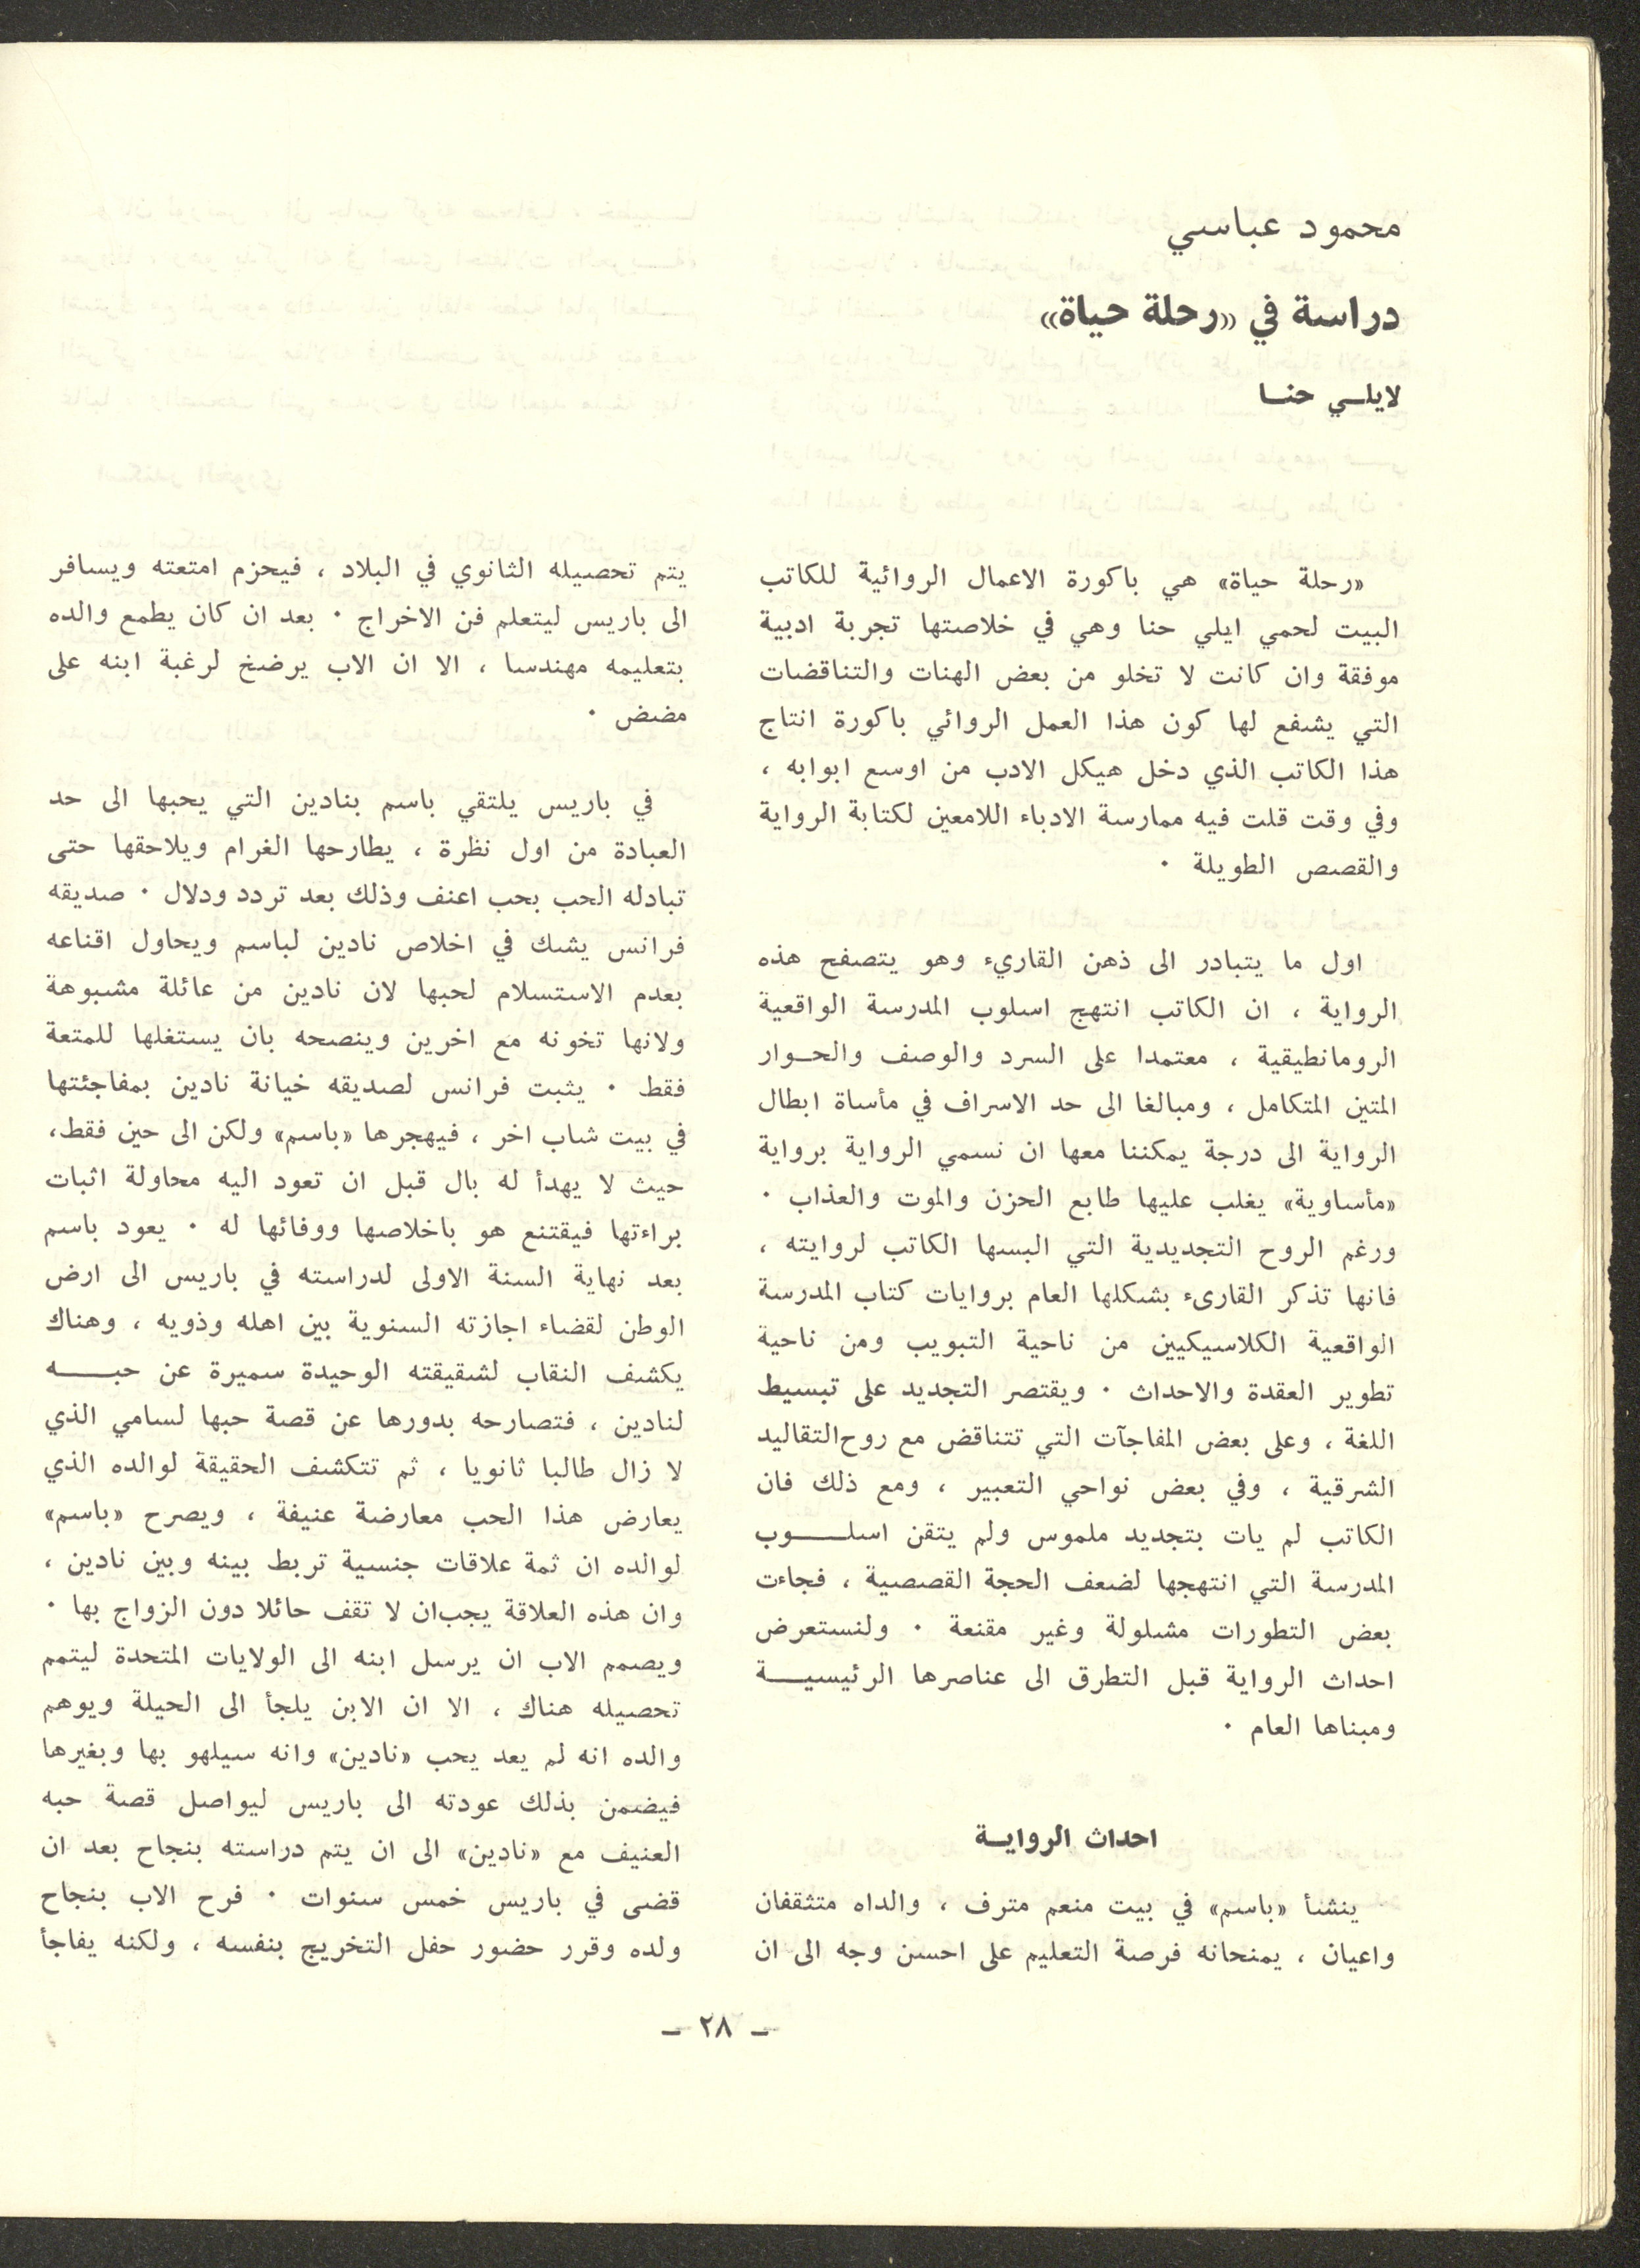 محمود عباسي
دراسة في «رحلة حياة»
لايلي حنا
«رحلة حياة» هي باكورة الاعمال الروائية للكاتب
البيت لحمي ايلي حنا وهي في خلاصتها تجربة ادبية
موفقة وان كانت لا تخلو من بعض الهنات والتناقضات
التي يشفع لها كون هذا العمل الروائي باكورة انتاج
هذا الكاتب الذي دخل هيكل الادب من اوسع ابوابه ،
وفي وقت قلت فيه ممارسة الادباء اللامعين لكتابة الرواية
والقصص الطويلة ٠
اول ما يتبادر الى ذهن القاريء وهو يتصفح هذه
الرواية ، ان الكاتب انتهج اسلوب المدرسة الواقعية
الرومانطيقية ، معتمدا على السرد والوصف والحـوار
المتين المتكامل ، ومبالغا الى حد الاسراف في مأساة ابطال
الرواية الى درجة يمكننا معها ان نسمي الرواية برواية
«مأساوية» يغلب عليها طابع الحزن والموت والعذاب ٠
ورغم الروح التجديدية التي البسها الكاتب لروايته ،
فانها تذكر القارىء بشكلها العام بروايات كتاب المدرسة
الواقعية الكلاسيكيين من ناحية التبويب ومن ناحية
تطوير العقدة والاحداث ٠ ويقتصر التجديد على تبسيط
اللغة ، وعلى بعض المفاجآت التي تتناقض مع روح التقاليد
الشرقية ، وفي بعض نواحي التعبير ، ومع ذلك فان
الكاتب لم يات بتجديد ملموس ولم يتقن اسلـــوب
المدرسة التي انتهجها لضعف الحجة القصصية ، فجاءت
بعض التطورات مشلولة وغير مقنعة ٠ ولنستعرض
احداث الرواية قبل التطرق الى عناصرها الرئيسيـــة
ومبناها العام ٠
احداث الروايـة
ينشأ «باسم» في بيت منعم مترف ، والداه متثقفان
واعيان ، يمنحانه فرصة التعليم على احسن وجه الى ان
يتم تحصيله الثانوي في البلاد ، فيحزم امتعته ويسافر
الى باريس ليتعلم فن الاخراج ٠ بعد ان كان يطمع والده
بتعليمه مهندسا ، الا ان الاب يرضخ لرغبة ابنه على
مضض ٠
في باريس يلتقي باسم بنادين التي يحبها الى حد
العبادة من اول نظرة ، يطارحها الغرام ويلاحقها حتى
تبادله الحب بحب اعنف وذلك بعد تردد ودلال ٠ صديقه
فرانس يشك في اخلاص نادين لباسم ويحاول اقناعه
بعدم الاستسلام لحبها لان نادين من عائلة مشبوهة
ولانها تخونه مع اخرين وينصحه بان يستغلها للمتعة
فقط ٠ يثبت فرانس لصديقه خيانة نادين بمفاجئتها
في بيت شاب اخر ، فيهجرها «باسم» ولكن الى حين فقط،
حيث لا يهدأ له بال قبل ان تعود اليه محاولة اثبات
براءتها فيقتنع هو باخلاصها ووفائها له ٠ يعود باسم
بعد نهاية السنة الاولى لدراسته في باريس الى ارض
الوطن لقضاء اجازته السنوية بين اهله وذويه ، وهناك
يكشف النقاب لشقيقته الوحيدة سميرة عن حبـــه
لنادين ، فتصارحه بدورها عن قصة حبها لسامي الذي
لا زال طالبا ثانويا ، ثم تتكشف الحقيقة لوالده الذي
يعارض هذا الحب معارضة عنيفة ، ويصرح «باسم»
لوالده ان ثمة علاقات جنسية تربط بينه وبين نادين ،
وان هذه العلاقة يجب ان لا تقف حائلا دون الزواج بها ٠
ويصمم الاب ان يرسل ابنه الى الولايات المتحدة ليتمم
تحصيله هناك ، الا ان الابن يلجأ الى الحيلة ويوهم
والده انه لم يعد يحب «نادين» وانه سيلهو بها وبغيرها
فيضمن بذلك عودته الى باريس ليواصل قصة حبه
العنيف مع «نادين» الى ان يتم دراسته بنجاح بعد ان
قضى في باريس خمس سنوات ٠ فرح الاب بنجاح
ولده وقرر حضور حفل التخريج بنفسه ، ولكنه يفاجأ
– ٢٨ –